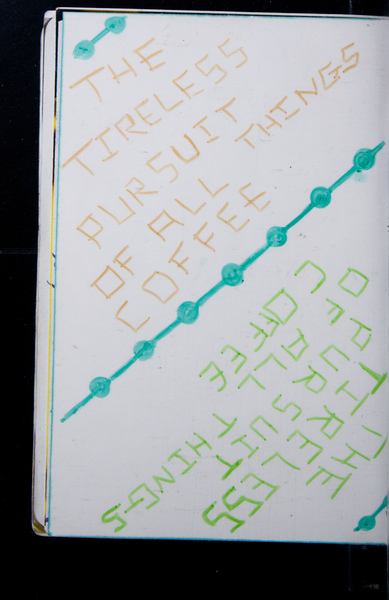 THE
TIRELESS
PURSUIT
OF ALL THINGS
COFFEE
THE
TIRELESS
PURSUIT
OF ALL THINGS
COFFEE